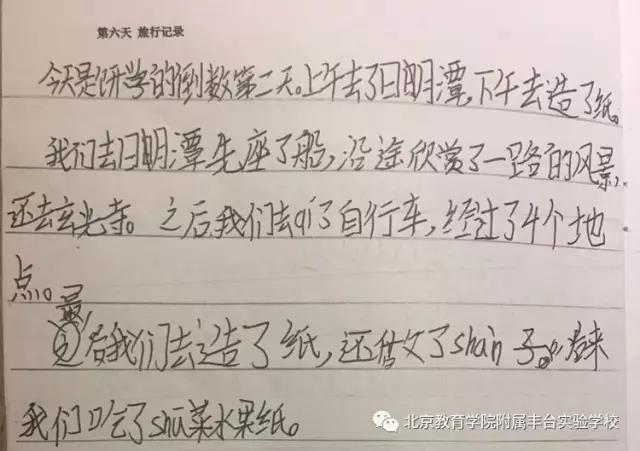 第六天 旅行记录
今天是研学的倒数第二天。上午去了日明潭,下午去造了纸。
我们去日明潭先座了船,沿途欣赏了一路的风景,
还去玄光寺。之后我们去qi了自行车,经过了4个地
点。
最后我们去造了纸,还做了shàn子。后来
我们吃了shū菜水果纸。
北京教育学院附属丰台实验学校